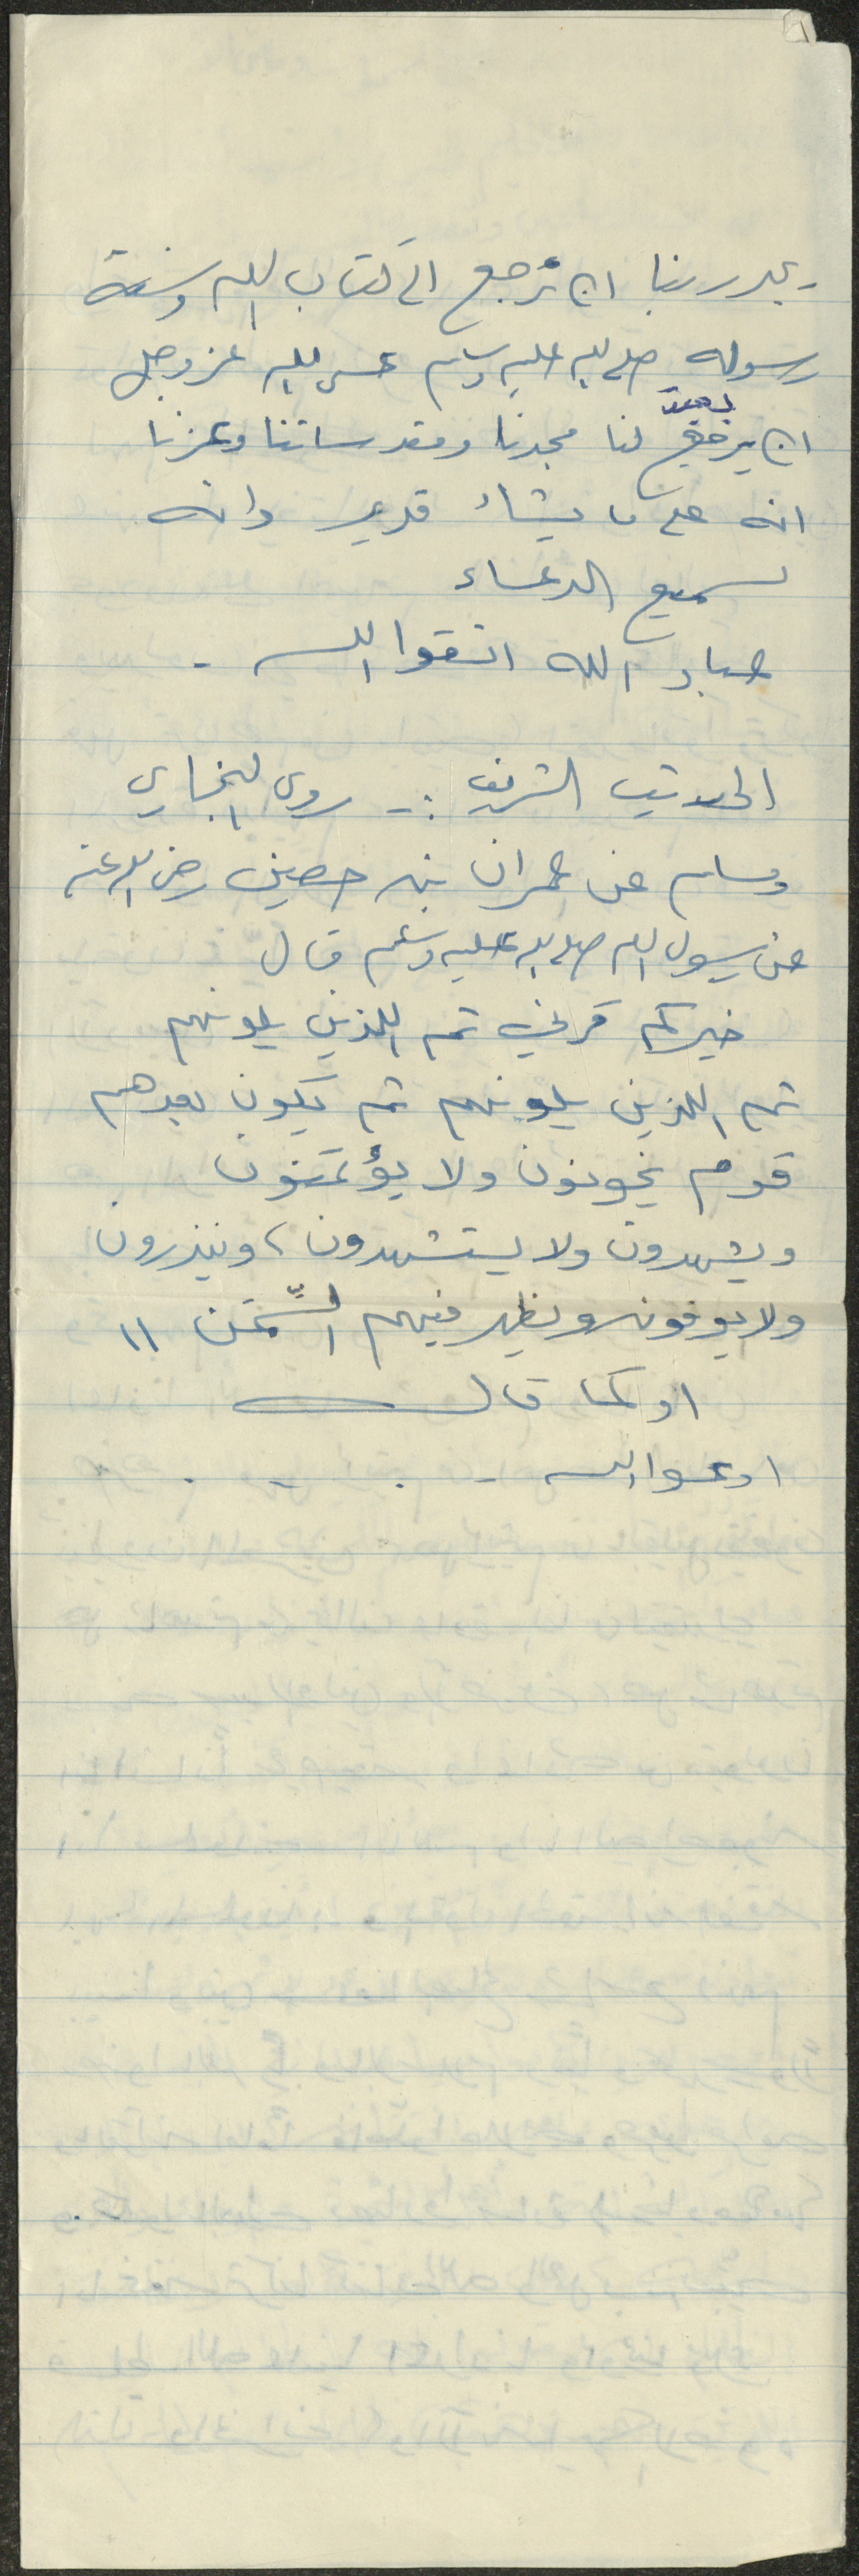 يجدر بنا ان نرجع الى كتاب الله وسنة
رسوله صلى الله عليه وسلم عسى الله عز وجل
ان يرجع لنا مجدنا ومقدساتنا وعزنا
انه على ما يشاء قدير وانه
لسميع الدعاء
عباد الله اتقوا الله -
الحديث الشريف :- روى البخاري
ومسلم عن عمران بن حصين رضي الله عنه
عن رسول الله صلى الله عليه وسلم قال
خيركم قرني ثم الذين يلونهم
ثم الذين يلونهم ثم يكون بعدهم
قوم يخونون ولا يؤتمنون
ويشهدون ولا يستشهدون، وينذرون
ولا يوفون ويظهر فيهم السِّمَن "
او كما قال
ادعوا الله - . - .